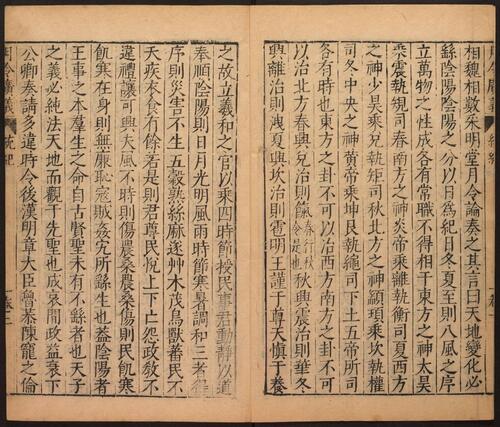 相魏相數采明堂月令論奏之其言曰天地變化必
繇陰陽陰陽之分以日為紀日冬夏至則八風之序
立萬物之性成各有常職不得相干東方之神太昊
乘震執規司春南方之神炎帝乘離執衡司夏西方
之神少昊乘兌執矩司秋北方之神顓頊乘坎執權
司冬中央之神黃帝乘坤艮執繩司下土五帝所司
各有時也東方之卦不可以治西方南方之卦不可
以治北方春興兌治則饑春行秋令是也秋興震治則華冬
興離治則洩夏興坎治則雹明王謹于尊天慎于養
之故立羲和之官以乘四時節授民事君動靜以道
奉順陰陽則日月光明風雨時節寒暑調和三者得
序則災害不生五穀熟絲麻遂艸木茂鳥獸蕃民不
夭疾衣食有餘若是則君尊民悅上下亡怨政教不
違禮讓可興夫風不時則傷農桑農桑傷則民飢寒
飢寒在身則無廉恥寇賊姦宄所繇生也蓋陰陽者
王事之本羣生之命自古賢聖未有不繇者也天子
之義必純法天地而觀于先聖也成哀間政益衰下
公卿奏請多違時令後漢明章大臣魯恭陳寵之倫
月令廣義 統紀